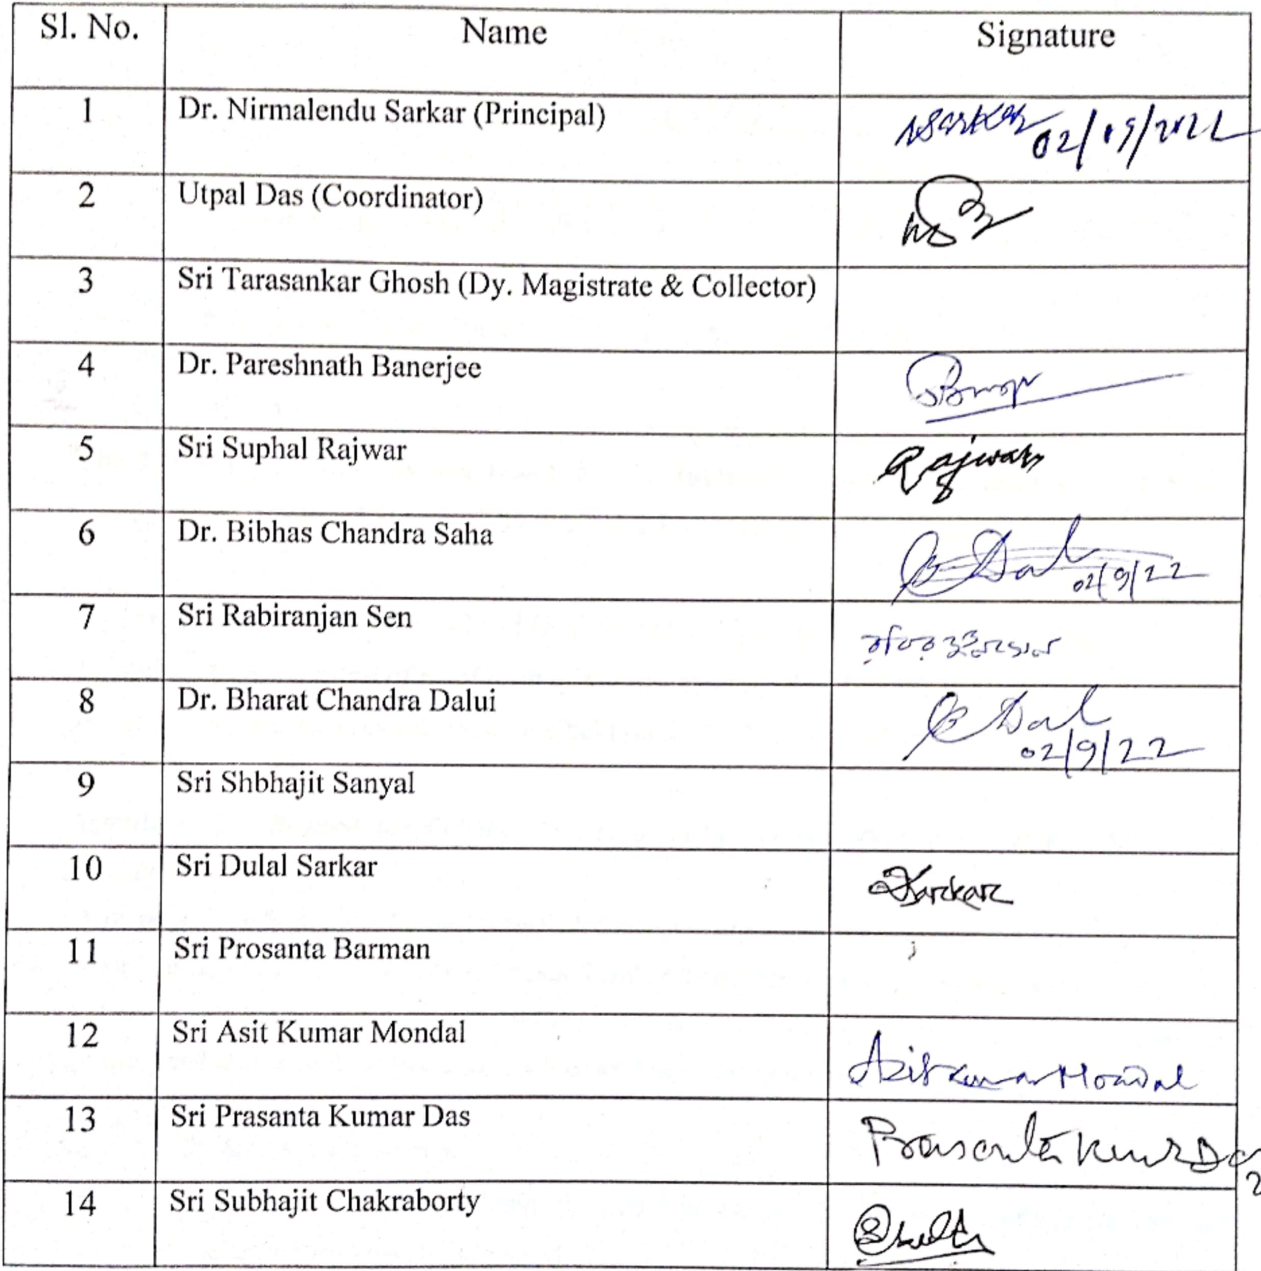 Sl. No. Name Signature
1 Dr. Nirmalendu Sarkar (Principal) NSarkar 02/09/2022
2 Utpal Das (Coordinator)
3 Sri Tarasankar Ghosh (Dy. Magistrate & Collector)
4 Dr. Pareshnath Banerjee
5 Sri Suphal Rajwar Rajwar
6 Dr. Bibhas Chandra Saha 02/9/22
7 Sri Rabiranjan Sen রবিরঞ্জন সেন
8 Dr. Bharat Chandra Dalui 02/9/22
9 Sri Shbhajit Sanyal
10 Sri Dulal Sarkar DSarkar
11 Sri Prosanta Barman
12 Sri Asit Kumar Mondal Asit Kumar Mondal
13 Sri Prasanta Kumar Das Prasanta Kumar Das
14 Sri Subhajit Chakraborty